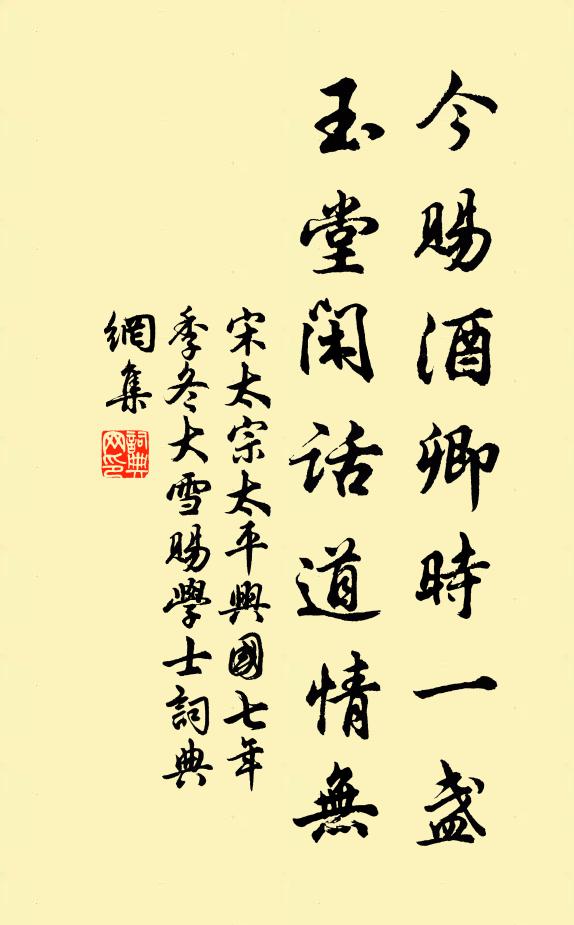 今賜酒卿時一盏
玉堂闲話道情無
宋太宗太平興國七年
季冬大雪賜學士詞典
網集
詞典網印